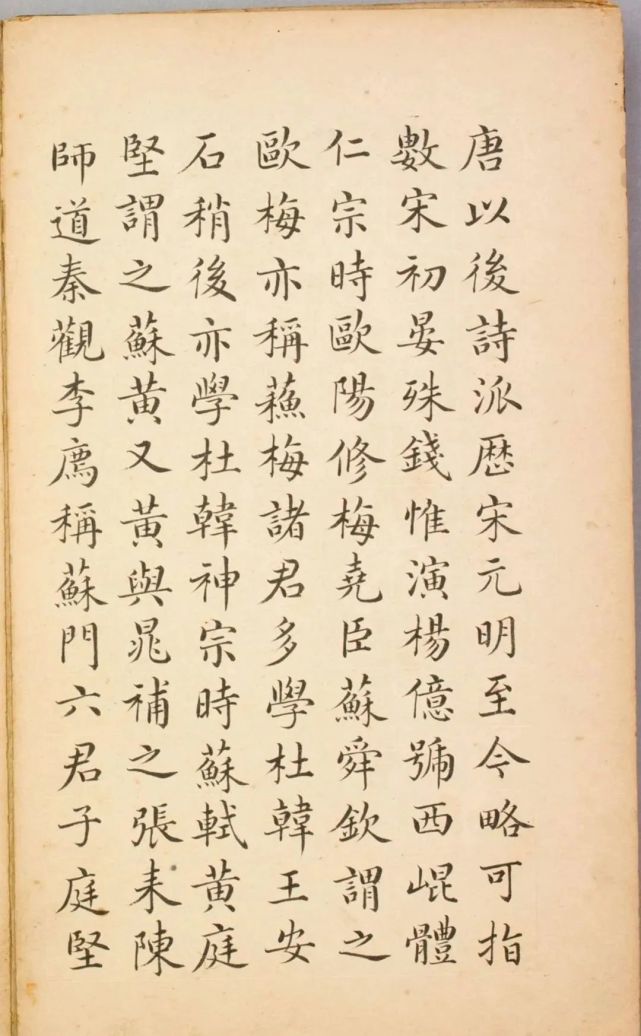 唐以後詩派歷宋元明至今略可指
數宋初晏殊錢惟演楊億號西崐體
仁宗時歐陽修梅堯臣蘇舜欽謂之
歐梅亦稱蘓梅諸君多學杜韓王安
石稍後亦學杜韓神宗時蘇軾黃庭
堅謂之蘇黃又黃與晁補之張耒陳
師道秦觀李廌稱蘇門六君子庭堅